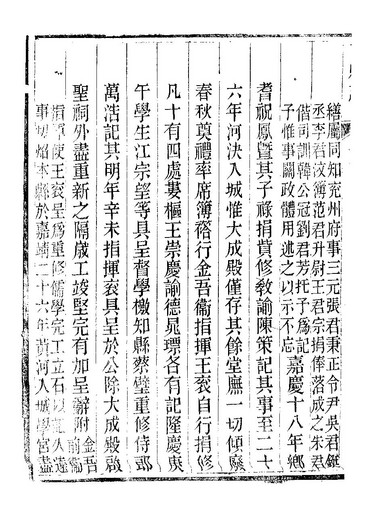 繕屬同知兗州府事三元張君秉正令尹吳君鉦
丞李君汶簿范君升尉王君宗捐俸落成之朱君
偕司訓韓公冠劉君芳托予為記
子惟事關政體用述之以示不忘
嘉慶十八年鄉
耆祝鳳暨其子祿捐貲修教諭陳策記其事至二十
六年河決入城惟大成殿僅存其餘堂廡一切傾廢
春秋奠禮率席簿褣行金吾衞指揮王衮自行捐修
凡十有四處婁樞王崇慶諭德晁瑮各有記隆慶庚
午學生江宗望等具呈督學檄知縣蔡璧重修侍郎
萬浩記其明年辛未指揮衮具呈於公除大成殿啟
聖祠外盡重新之隔歲工竣堅完有加呈辭附
金吾
前衞
指揮使王衮呈為重修儒學完工立石以 久遠
事切焰本縣於嘉靖二十六年黃河入城學宮盡